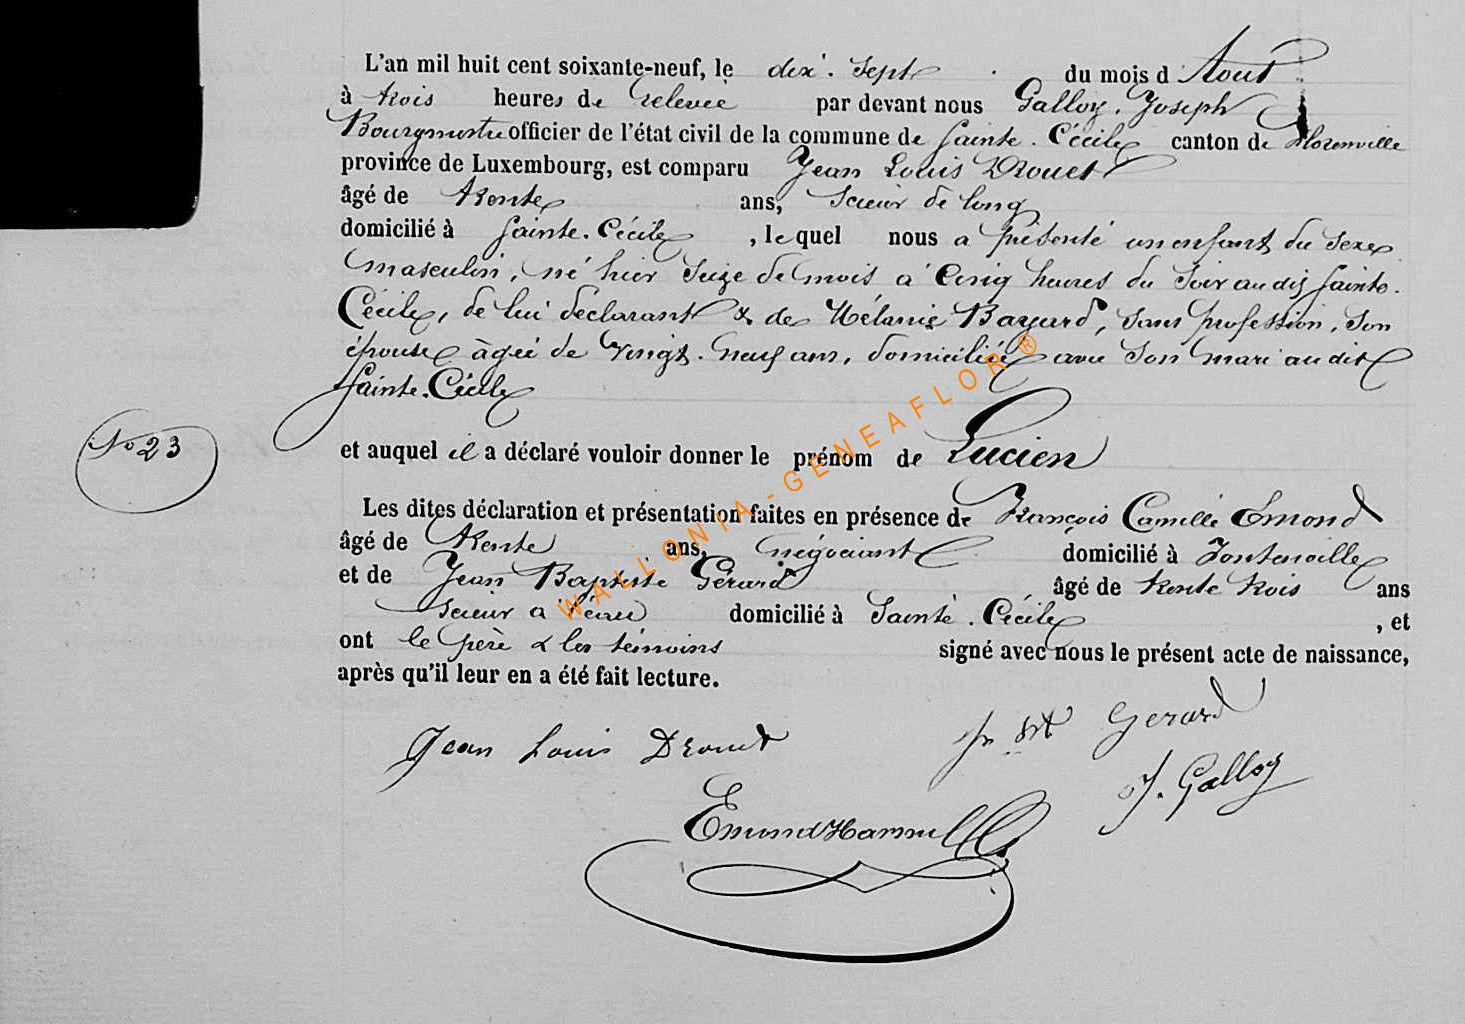 L'an mil huit cent soixante-neuf, le dix-sept du mois d'Aout
à trois heures de relevée par devant nous Galloy, Joseph
Bourgmestre officier de l'état civil de la commune de Sainte-Cécile canton de Florenville
province de Luxembourg, est comparu Jean Louis Drouet
âgé de trente ans, scieur de long
domicilié à Sainte-Cécile, lequel nous a présenté un enfant du sexe
masculin, né hier seize de mois à cinq heures du soir au dit Sainte-
Cécile, de lui déclarant & de Mélanie Bayard, sans profession, son
épouse âgée de vingt-neuf ans, domiciliée avec son mari au dit
Sainte-Cécile
No 23
et auquel il a déclaré vouloir donner le prénom de Lucien
Les dites déclaration et présentation faites en présence de François Camille Emond
âgé de trente ans, négociant domicilié à Fontenoille
et de Jean Baptiste Gérard âgé de trente trois ans
scieur à l'eau domicilié à Sainte-Cécile, et
ont le père & les témoins signé avec nous le présent acte de naissance,
après qu'il leur en a été fait lecture.
Jean Louis Drouet
Gerard
J. Galloy
Emond
WALLONIA-GENEAFLOR®